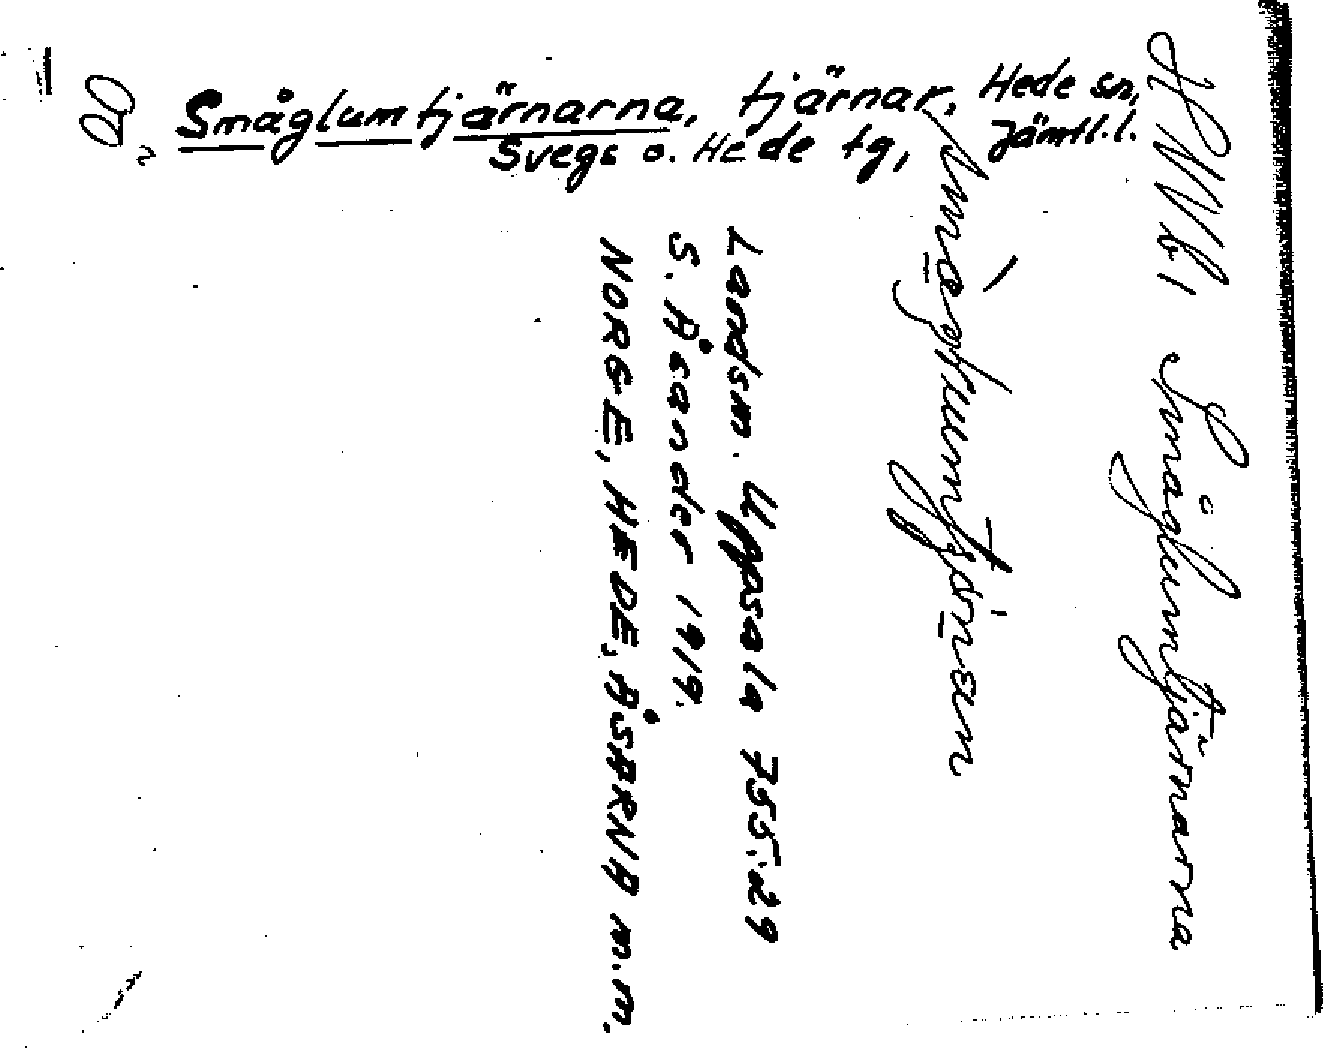 Småglumtjärnarna, tjärnar, Hede sn,
Svegs o. Hede tg, Jämtl. l.
Småglumtjärnarna
Landsm. Uppsala 755:29
S. Åsander 1919.
NORGE, HEDE, ÅSARNA m.m.